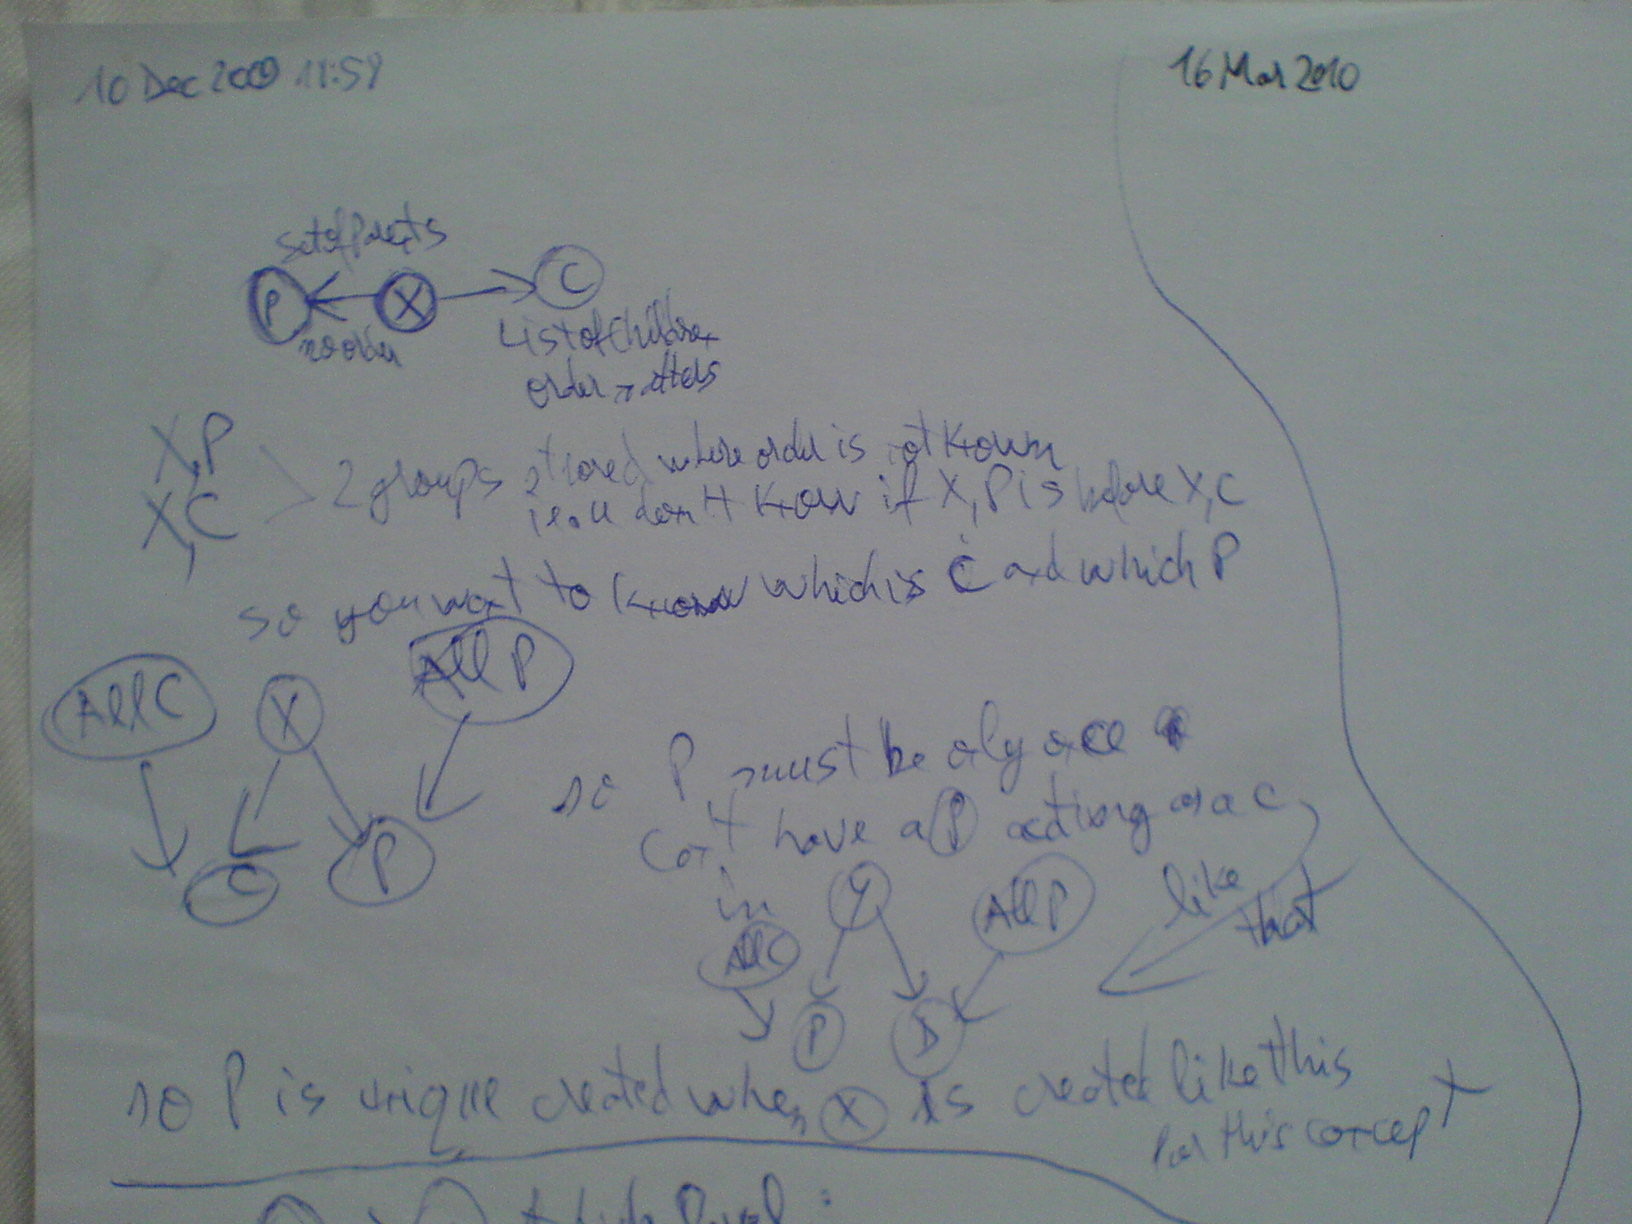 10 Dec 2009 11:59
16 Mar 2010
Set of Parents
P X C
no order
List of Children
order matters
X,P
X,C
2 groups stored where order is not known
i.e. u don't know if X,P is before X,C
so you want to know which is C and which P
All C X All P
C P
so P must be only one
can't have a P acting as a C,
like that
in
All C Y All P
P D
so P is unique created when X is created like this
for this concept